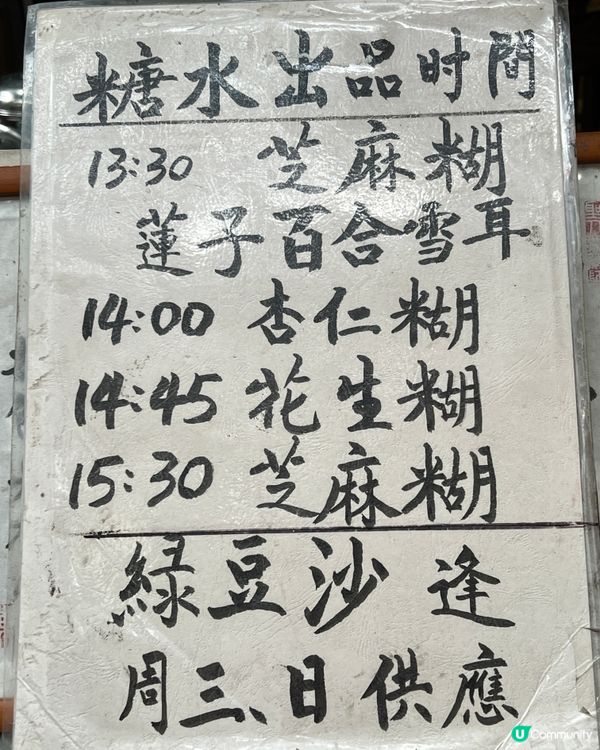 糖水出品时間
13:30 芝麻糊
蓮子百合雪耳
14:00 杏仁糊
14:45 花生糊
15:30 芝麻糊
綠豆沙 逢
周三、日供應
U Community